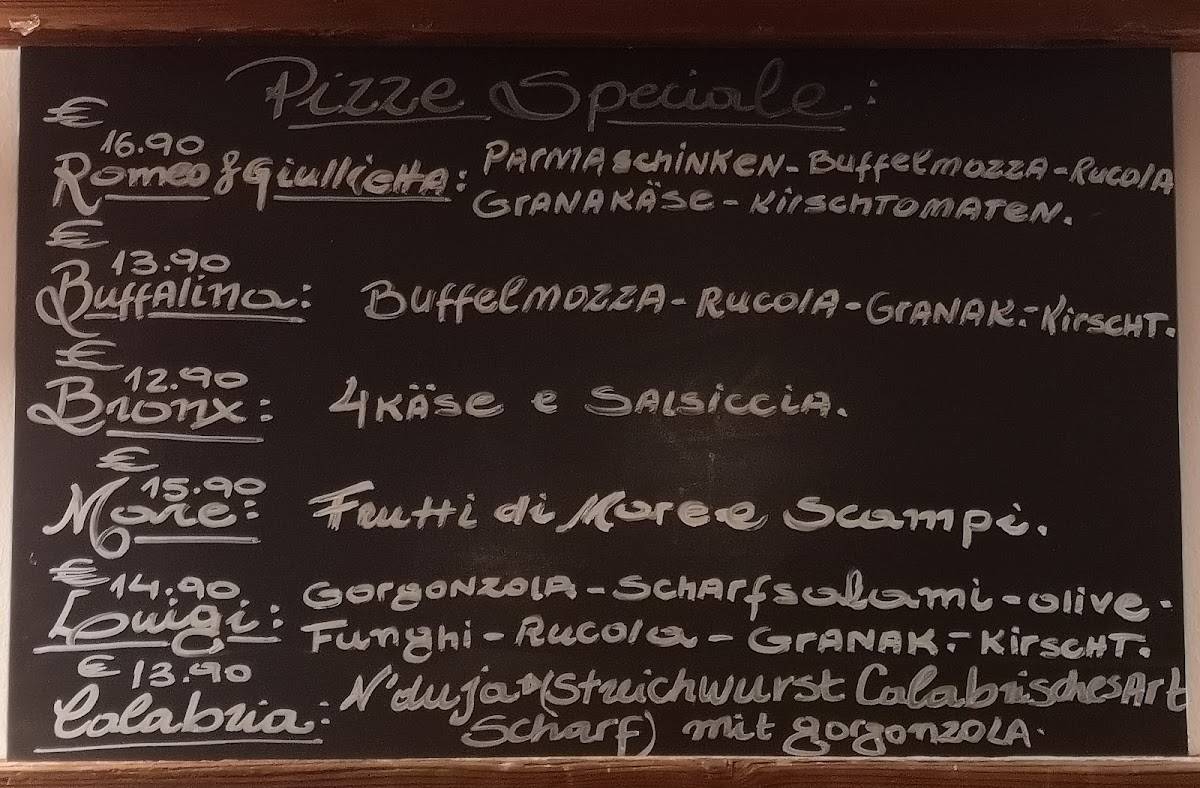 Pizze Speciale:
€ 16.90
Romeo & Giullietta: PARMASCHINKEN - BUFFELMOZZA - RUCOLA
GRANAKÄSE - KIRSCHTOMATEN.
€ 13.90
BUFFALINA: BUFFELMOZZA - RUCOLA - GRANAK. - KIRSCHT.
€ 12.90
Bronx: 4 KÄSE e SALSICCIA.
€ 15.90
Mare: Frutti di Mare e Scampi.
€ 14.90
Luigi: GORGONZOLA - SCHARFSALAMI - OLIVE -
Funghi - RUCOLA - GRANAK. - KIRSCHT.
€ 13.90
Calabria: N'duja (Streichwurst Calabrisches Art
Scharf) mit gorgonzola.